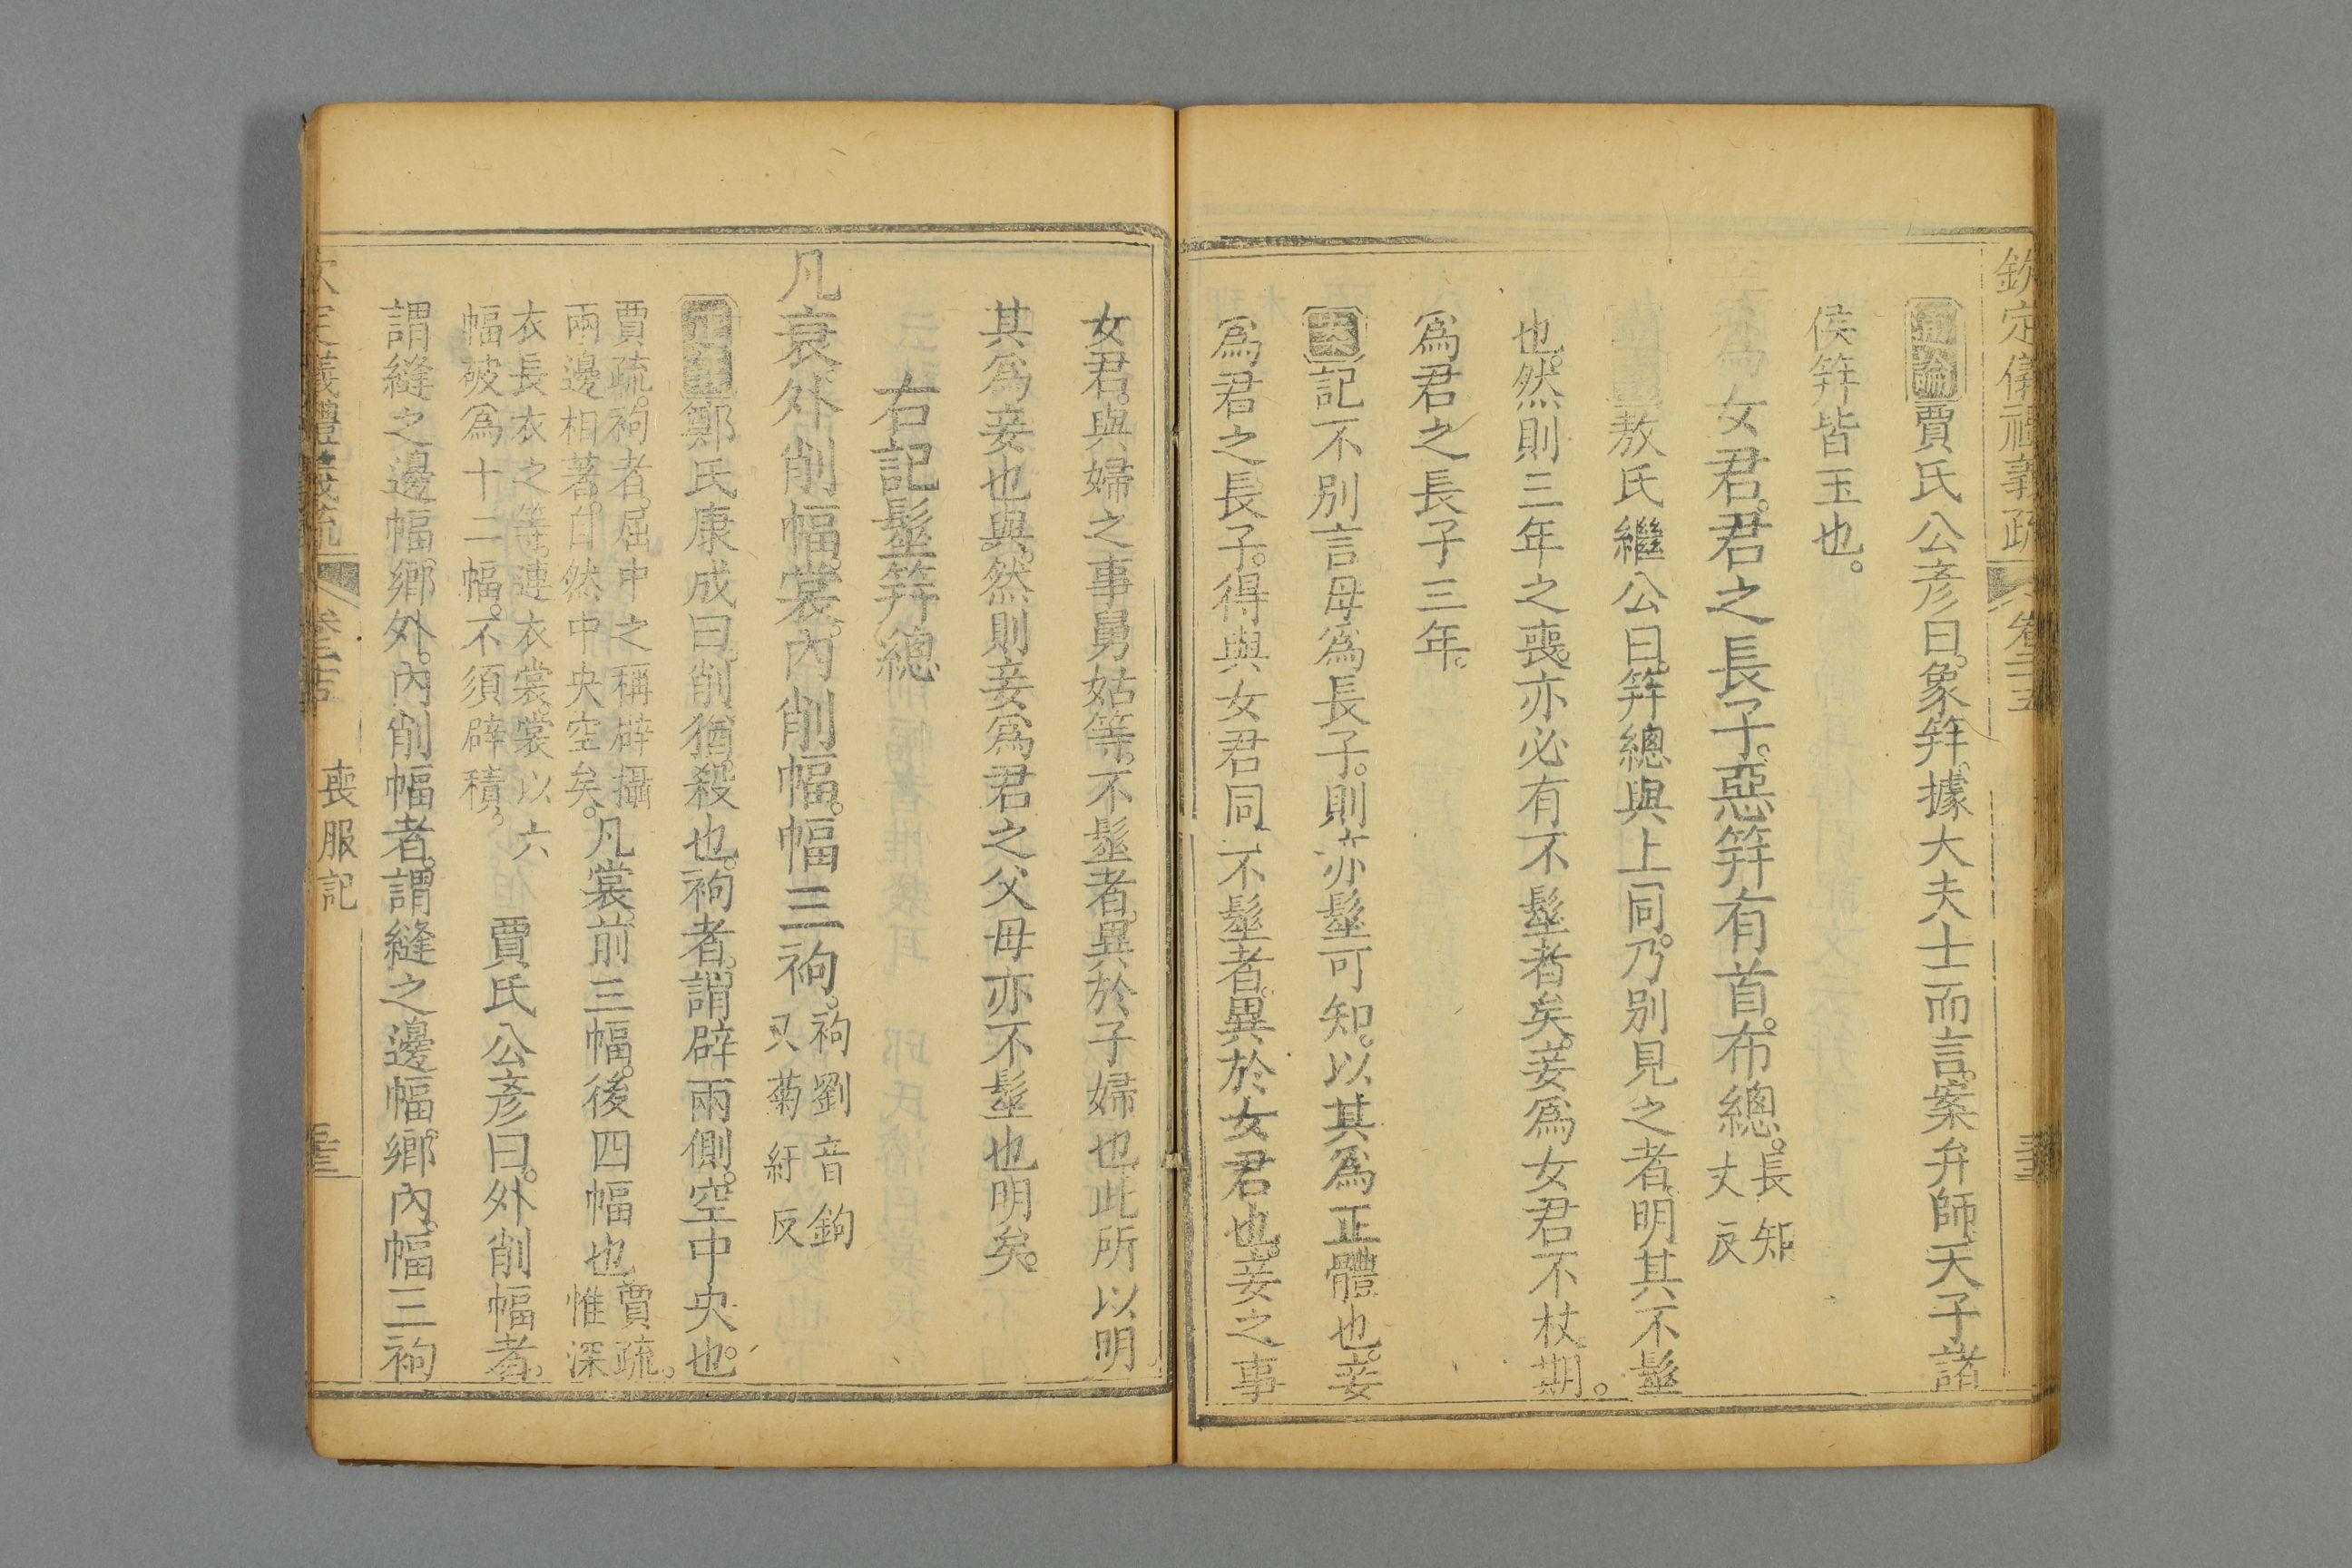 欽定儀禮義疏 卷二十五
通論賈氏公彦曰。象笄。據大夫士而言。案弁師。天子諸
侯笄皆玉也。
妾爲女君。君之長子。惡笄有首。布總。長知丈反
敖氏繼公曰。笄總與上同。乃別見之者。明其不髽
也。然則三年之喪。亦必有不髽者矣。妾爲女君不杖期。
爲君之長子三年。
案記不別言母爲長子。則亦髽可知。以其爲正體也。妾
爲君之長子。得與女君同。不髽者。異於女君也。妾之事
女君。與婦之事舅姑等。不髽者。異於子婦也。此所以明
其爲妾也與。然則妾爲君之父母亦不髽也明矣。
右記髽笄總
凡衰外削幅。裳。內削幅。幅三袧。袧劉音鉤又菊紆反
正義鄭氏康成曰。削。猶殺也。袧者。謂辟兩側。空中央也。
賈疏。袧者。屈中之稱辟攝
兩邊相著。自然中央空矣。凡裳。前三幅。後四幅也賈疏。惟深
衣長衣之等。連衣裳。裳以六
幅破爲十二幅。不須辟積。賈氏公彦曰。外削幅者。
謂縫之邊幅鄉外。內削幅者。謂縫之邊幅鄉內。幅三袧
喪服記